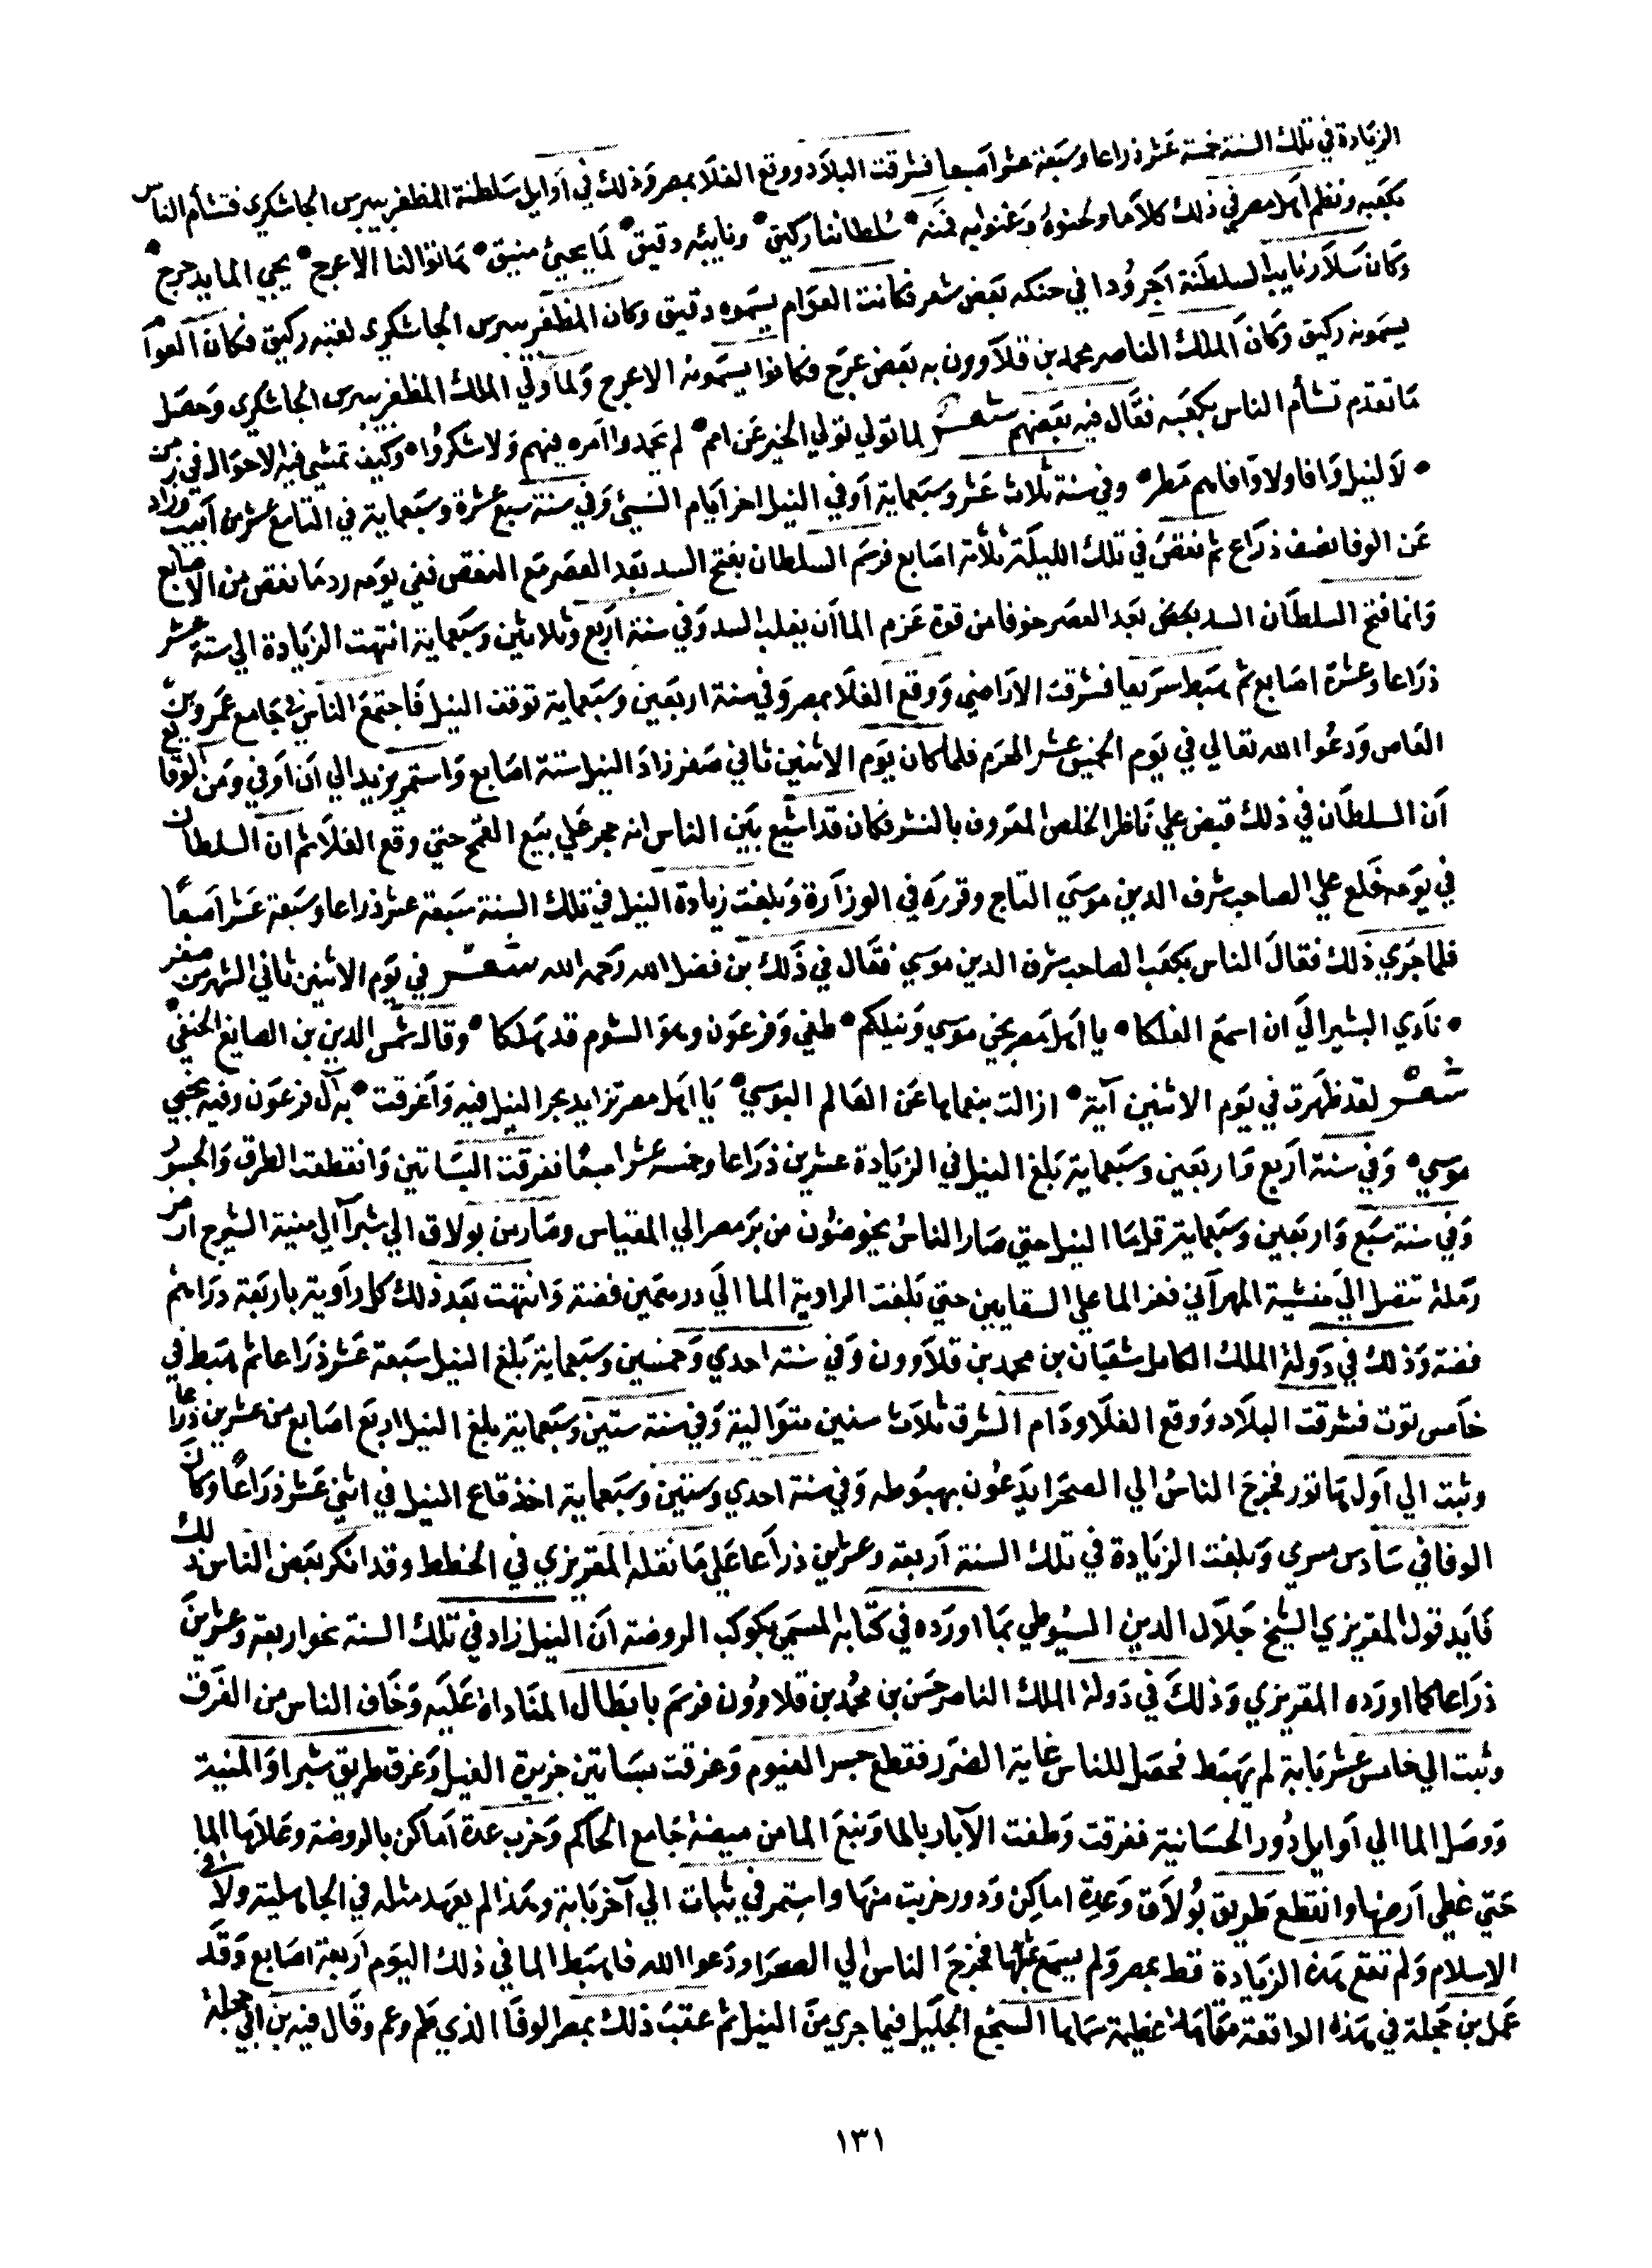 الزيادة في تلك السنة خمسة عشر ذراعا وسبعة عشر اصبعا فشرقت البلاد ووقع الغلا بمصر وذلك في اوايل سلطنة المظفر بيبرس الجاشكري فتشأم الناس
بكعبه ونظم اهل مصر في ذلك كلاما ولحنوه وغنوا به فمنه * سلطاننا ركيق * ونايبه دقيق * لما يجيئ منيق * هاتوا لنا الاعرج * يجي الما يدحرج *
وكان سلار نايب السلطنة اجرودا في حنكه بعض شعر فكانت العوام يسموه دقيق وكان المظفر بيبرس الجاشكري لقبه ركيق فكان العوام
يسمونه ركيق وكان الملك الناصر محمد بن قلاوون به بعض عرج فكانوا يسمونه الاعرج ولما ولي الملك المظفر بيبرس الجاشكري وحصل
ما تقدم تشأم الناس بكعبه فقال فيه بعضهم شعر لما تولي تولي الخير عن امم * لم يحمدوا امره فيهم ولا شكروا * وكيف تمشي فيه الاحوال في زمن
* لا لنيل وافا ولا وافاهم مطر * وفي سنة ثلاث عشر وسبعماية اوفي النيل اخر ايام النسيئ وفي سنة سبع عشرة وسبعماية في التاسع عشر من ابيب وزاد
عن الوفا نصف ذراع ثم نقص في تلك الليلة ثلاثة اصابع فرسم السلطان بفتح السد بعد العصر مع النقص ففي يومه رد ما نقص من الاصابع
وانما فتح السلطان السد بعد العصر خوفا من قوة عزم الما ان يغلب السد وفي سنة اربع وثلاثين وسبعماية انتهت الزيادة الي ستة عشر
ذراعا وعشرة اصابع ثم هبط سريعا فشرقت الاراضي ووقع الغلا بمصر وفي سنة اربعين وسبعماية توقف النيل فاجتمع الناس في جامع عمرو بن
العاص ودعوا الله تعالي في يوم الخميس عشر المحرم فلما كان يوم الاثنين ثاني صفر زاد النيل ستة اصابع واستمر يزيد الي ان اوفي ومن الوقا
ان السلطان في ذلك قبض علي ناظر الخاص المعروف بالنشو فكان قد اشيع بين الناس انه حجر علي بيع القمح حتي وقع الغلا ثم ان السلطان
في يومه خلع علي الصاحب شرف الدين موسي التاج وقرره في الوزارة وبلغت زيادة النيل في تلك السنة سبعة عشر ذراعا وسبعة عشر اصبعا
فلما جري ذلك فقال الناس بكعب الصاحب شرف الدين موسي فقال في ذلك بن فضل الله رحمه الله شعر في يوم الاثنين ثاني الشهر من صفر
* نادي البشير الي ان اسمع الفلكا * يا اهل مصر نجي موسي ونيلكم * طغي وفرعون وهو الشوم قد هلكا * وقال شمس الدين بن الصايغ الحنفي *
شعر لقد ظهرت في يوم الاثنين آية * ازالت بنعماها عن العالم البوسي * يا اهل مصر تزايد بحر النيل فيه واغرقت * به آل فرعون وفيه نجي
موسي * وفي سنة اربع واربعين وسبعماية بلغ النيل في الزيادة عشرين ذراعا وخمسه عشر اصبعا فغرقت البساتين وانقطعت الطرق والجسور
وفي سنة سبع واربعين وسبعماية قل ما النيل حتي صار الناس يخوضون من بر مصر الي المقياس وصار من بولاق الي شبرا الي منية الشيرج ارض
رملة تتصل الي منشية المهراني فغز الما علي السقايين حتي بلغت الراوية الما الي درهمين فضة وانتهت بعد ذلك كل راوية باربعة دراهم
فضة وذلك في دولة الملك الكامل شعبان بن محمد بن قلاوون وفي سنة احدي وخمسين وسبعماية بلغ النيل سبعة عشر ذراعا ثم هبط في
خامس توت فشرقت البلاد ووقع الغلا ودام الشرق ثلاث سنين متوالية وفي سنة ستين وسبعماية بلغ النيل اربع اصابع من عشرين ذراعا
وثبت الي اول هاتور فخرج الناس الي الصحرا يدعون بهبوطه وفي سنة احدي وستين وسبعماية اخذ قاع النيل في اثني عشر ذراعا وكان
الوفا في سادس مسري وبلغت الزيادة في تلك السنة اربعة وعشرين ذراعا علي ما نقله المقريزي في الخطط وقد انكر بعض الناس ذلك
فايد قول المقريزي الشيخ جلال الدين السيوطي بما اورده في كتابه المسمي بكوكب الروضة ان النيل زاد في تلك السنة نحو اربعة وعشرين
ذراعا كما اورده المقريزي وذلك في دولة الملك الناصر حسن بن محمد بن قلاوون فرسم بابطال المناداة عليه وخاف الناس من الغرق
وثبت الي خامس عشر بابة لم يهبط فحصل للناس غاية الضرر فقطع جسر الفيوم وغرقت بساتين جزيرة الفيل وغرق طريق شبرا والمنية
ووصل الما الي اوايل دور الحسانية فغرقت وطفت الآبار بالما ونبع الما من ميضة جامع الحاكم وخرب عدة اماكن بالروضة وعلاها الما
حتي غطي ارضها وانقطع طريق بولاق وعدة اماكن ودور خربت منها واستمر في ثبات الي آخر بابة وهذا لم يعهد مثله في الجاهلية ولا في
الاسلام ولم تقع هذه الزيادة قط بمصر ولم يسمع بمثلها فخرج الناس الي الصحرا ودعوا الله فاهبط الما في ذلك اليوم اربعة اصابع وقد
عمل بن حجلة في هذه الواقعة مقامة عظيمة سماها السجع الجليل فيما جري من النيل ثم عقب ذلك بمصر الوفا الذي طم وعم وقال فيه بن ابي حجلة
١٣١